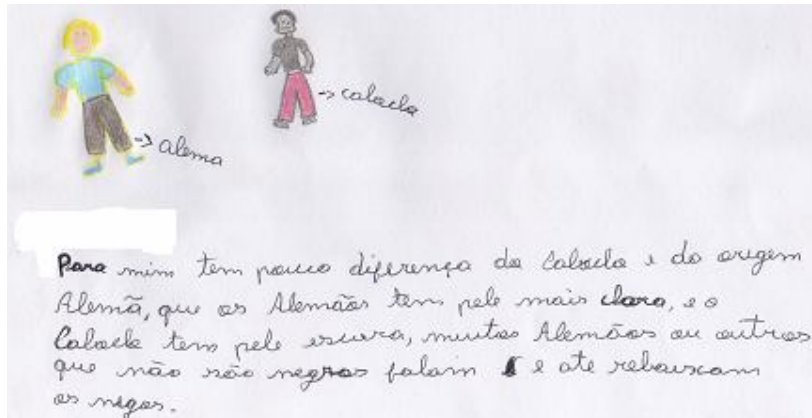 -> alema
-> caboclo
Para mim tem pouco diferença da Caboclo e da origem
Alemã, que os Alemãos tem pele mais clara, e o
Caboclo tem pele escura, muitos Alemãos ou outros
que não são negros falam e ate rebauscam
os negos.